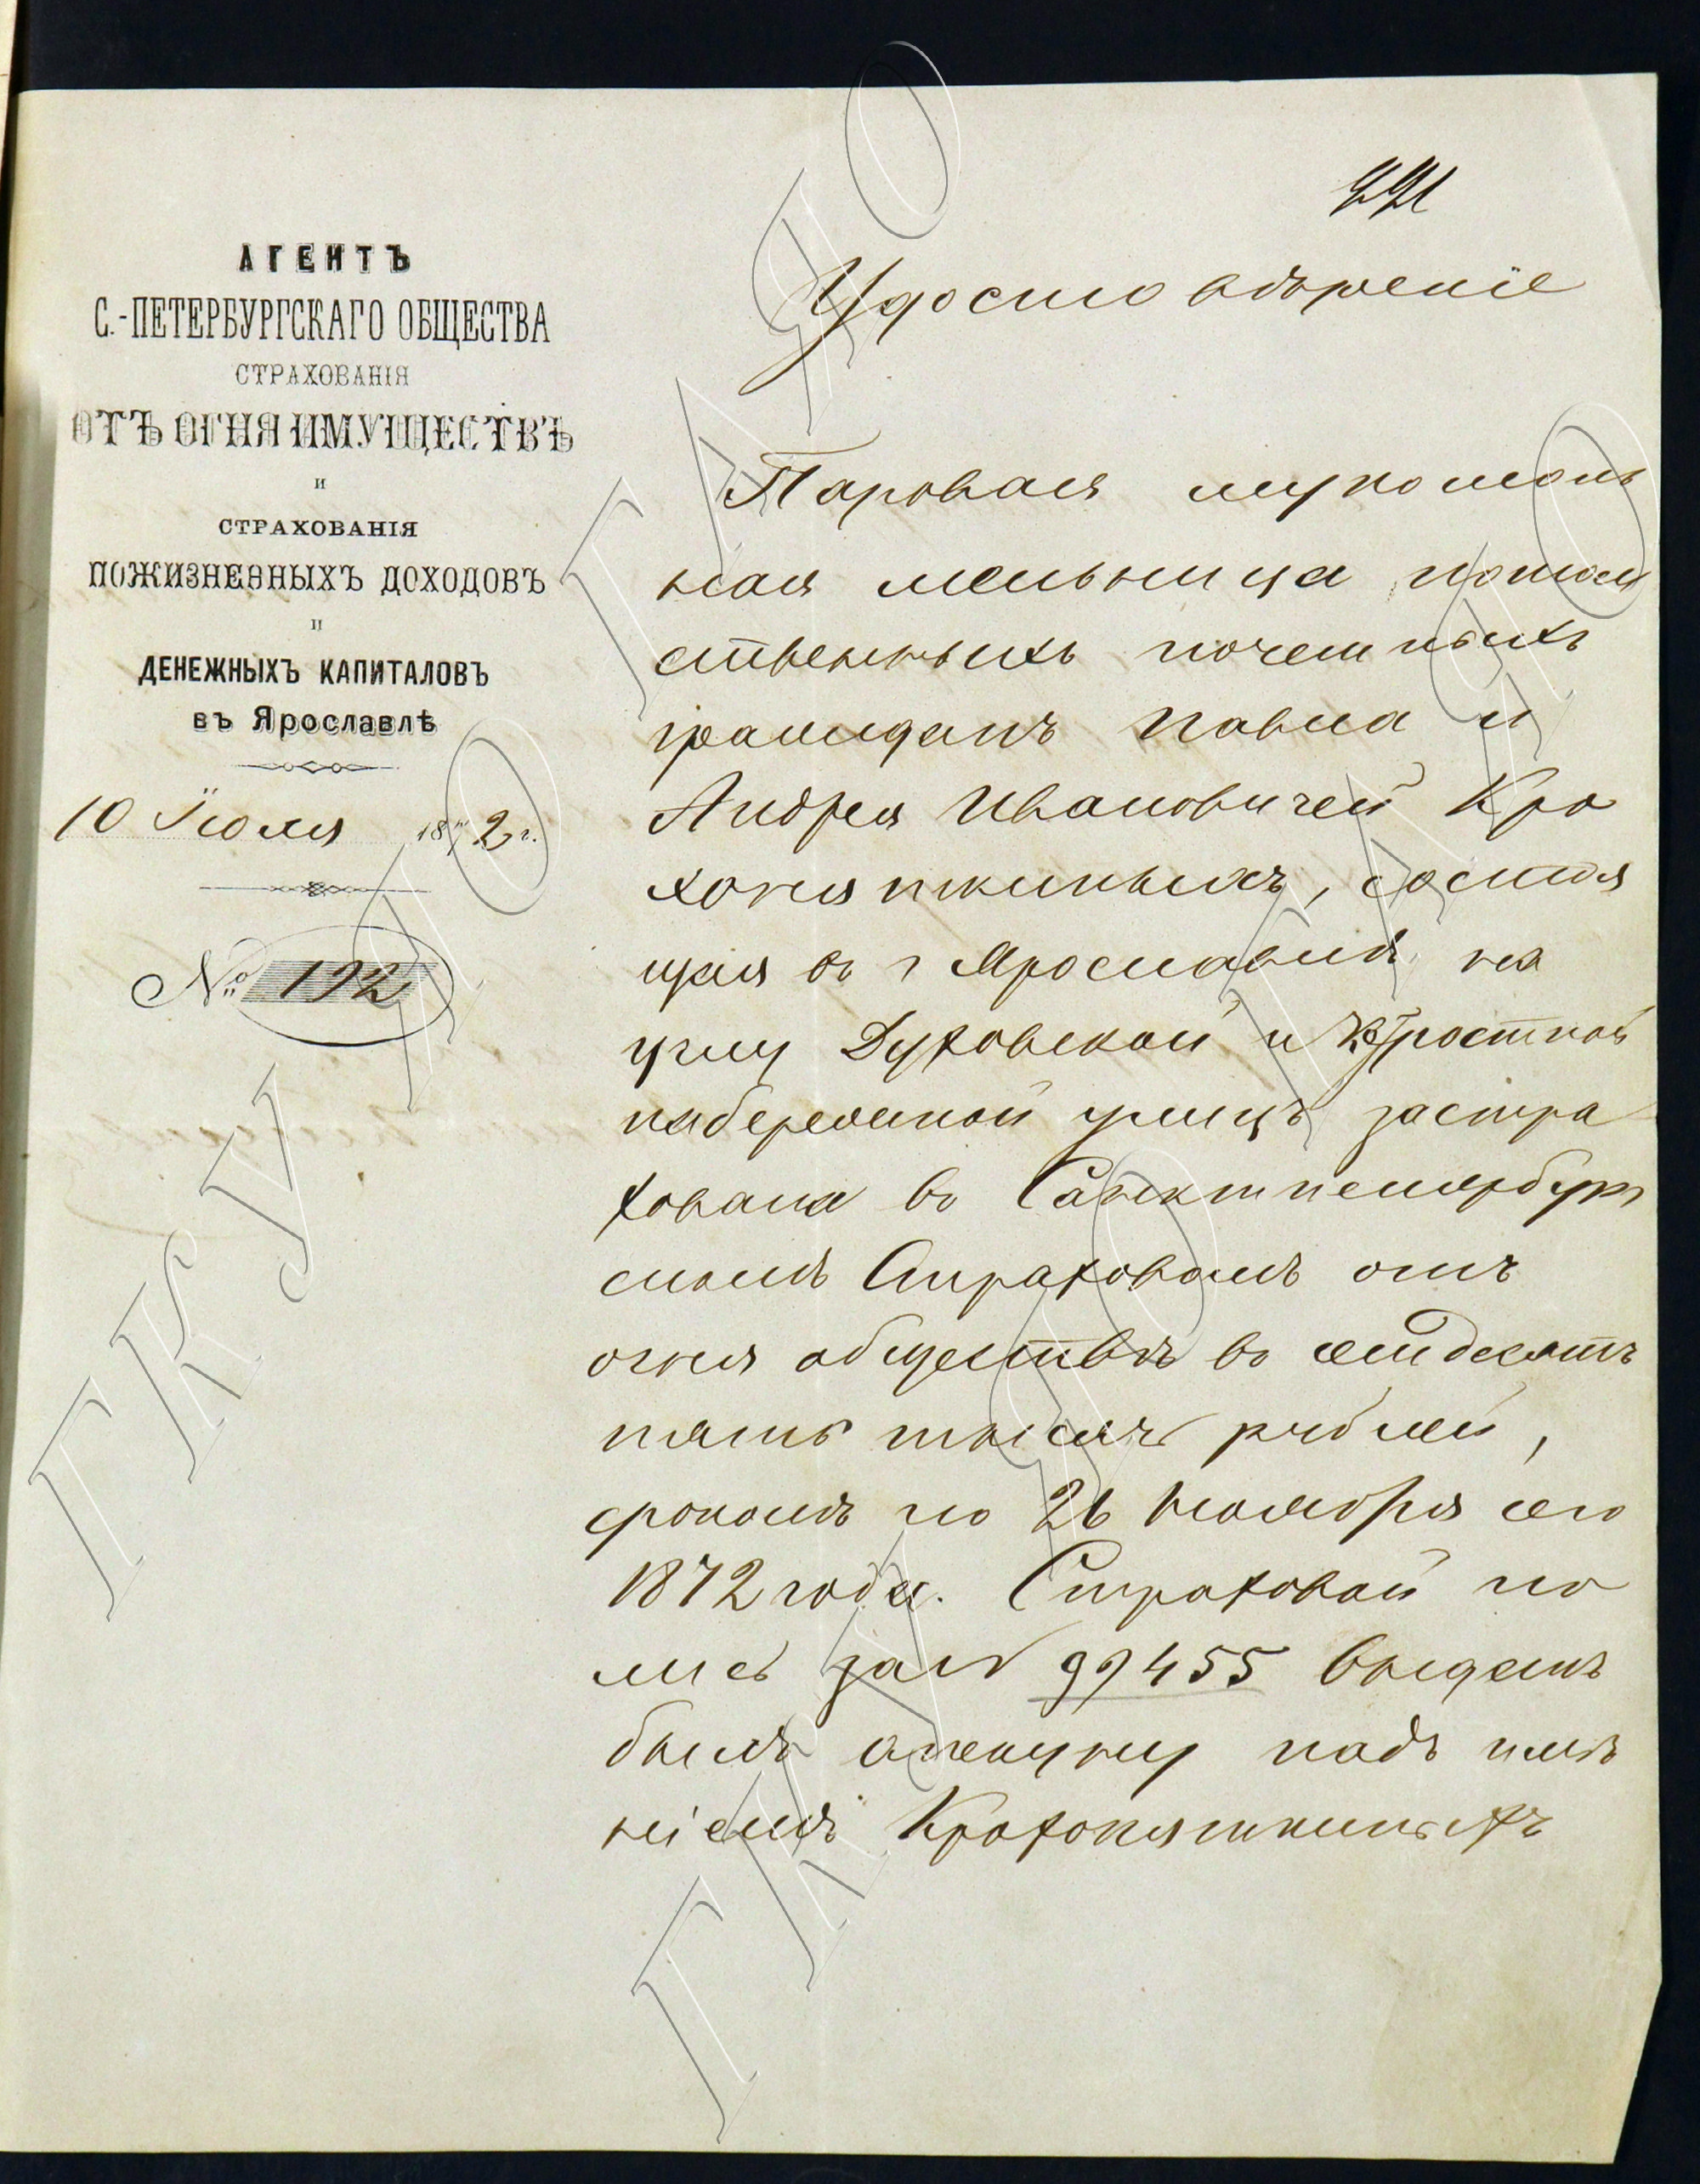 АГЕНТЪ
С.-ПЕТЕРБУРГСКАГО ОБЩЕСТВА
СТРАХОВАНІЯ
ОТЪ ОГНЯ ИМУЩЕСТВЪ
И
СТРАХОВАНІЯ
ПОЖИЗНЕННЫХЪ ДОХОДОВЪ
И
ДЕНЕЖНЫХЪ КАПИТАЛОВЪ
въ Ярославлѣ
10 Іюля 1872 г.
№ 192
Удостовѣреніе
Паровая мукомоль
ная мельница потом
ственныхъ почетныхъ
гражданъ Павла и
Андрея Ивановичей Кро
хоняткиныхъ, состоя
щая въ г Ярославлѣ на
углу Духовской и
набережной улицъ застра
хована въ Санктпетербург
скомъ Страховомъ отъ
огня обществѣ въ семдесятъ
пять тысячъ рублей,
срокомъ по 26 Ноября сего
1872 года. Страховой по
лисъ за № 99455 выданъ
былъ опекуну надъ имѣ
ніемъ Крохоняткиныхъ
ГКУ ЯО ГАЯО
ГКУ ЯО ГАЯО